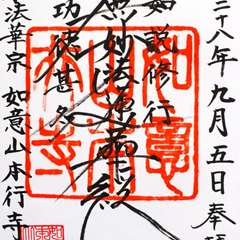 二十八年九月五日奉拝
如説修行
無妙法蓮華経
功徳甚多
法華宗 如意山本行寺
如意山本行寺